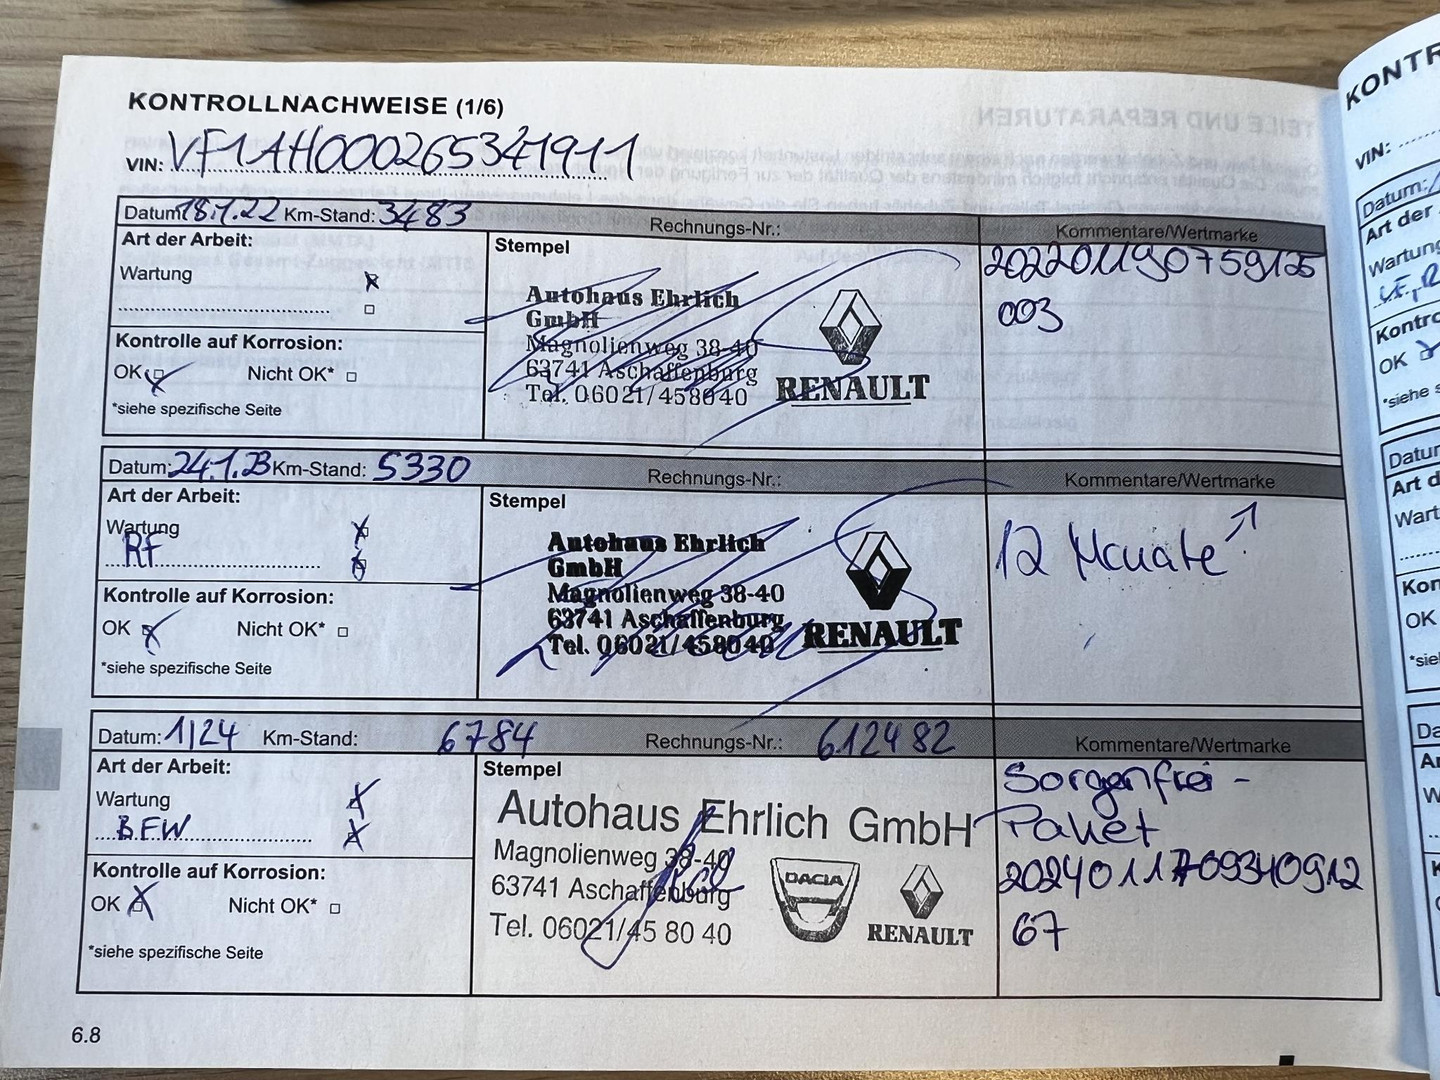 KONTROLLNACHWEISE (1/6)
VIN: VF1AH000265341911
Datum: 18.1.22 Km-Stand: 3483 Rechnungs-Nr.: Kommentare/Wertmarke
Art der Arbeit:
Wartung
Kontrolle auf Korrosion:
OK Nicht OK*
*siehe spezifische Seite
Stempel
Autohaus Ehrlich
GmbH
Magnolienweg 38-40
63741 Aschaffenburg
Tel. 06021/458040
RENAULT
20220119075912 5
003
Datum: 24.1.23 Km-Stand: 5330 Rechnungs-Nr.: Kommentare/Wertmarke
Art der Arbeit:
Wartung
RF
Kontrolle auf Korrosion:
OK Nicht OK*
*siehe spezifische Seite
Stempel
Autohaus Ehrlich
GmbH
Magnolienweg 38-40
63741 Aschaffenburg
Tel. 06021/458040
RENAULT
12 Monate
Datum: 1/24 Km-Stand: 6784 Rechnungs-Nr.: 612482 Kommentare/Wertmarke
Art der Arbeit:
Wartung
BFW
Kontrolle auf Korrosion:
OK Nicht OK*
*siehe spezifische Seite
Stempel
Autohaus Ehrlich GmbH
Magnolienweg 38-40
63741 Aschaffenburg
Tel. 06021/45 80 40
DACIA
RENAULT
Sorgenfrei-
Paket
20240117093409 12
67
6.8
VIN:
Datum:
Art der
Wartung
OK
*siehe
Datum
Art d
Wart
OK